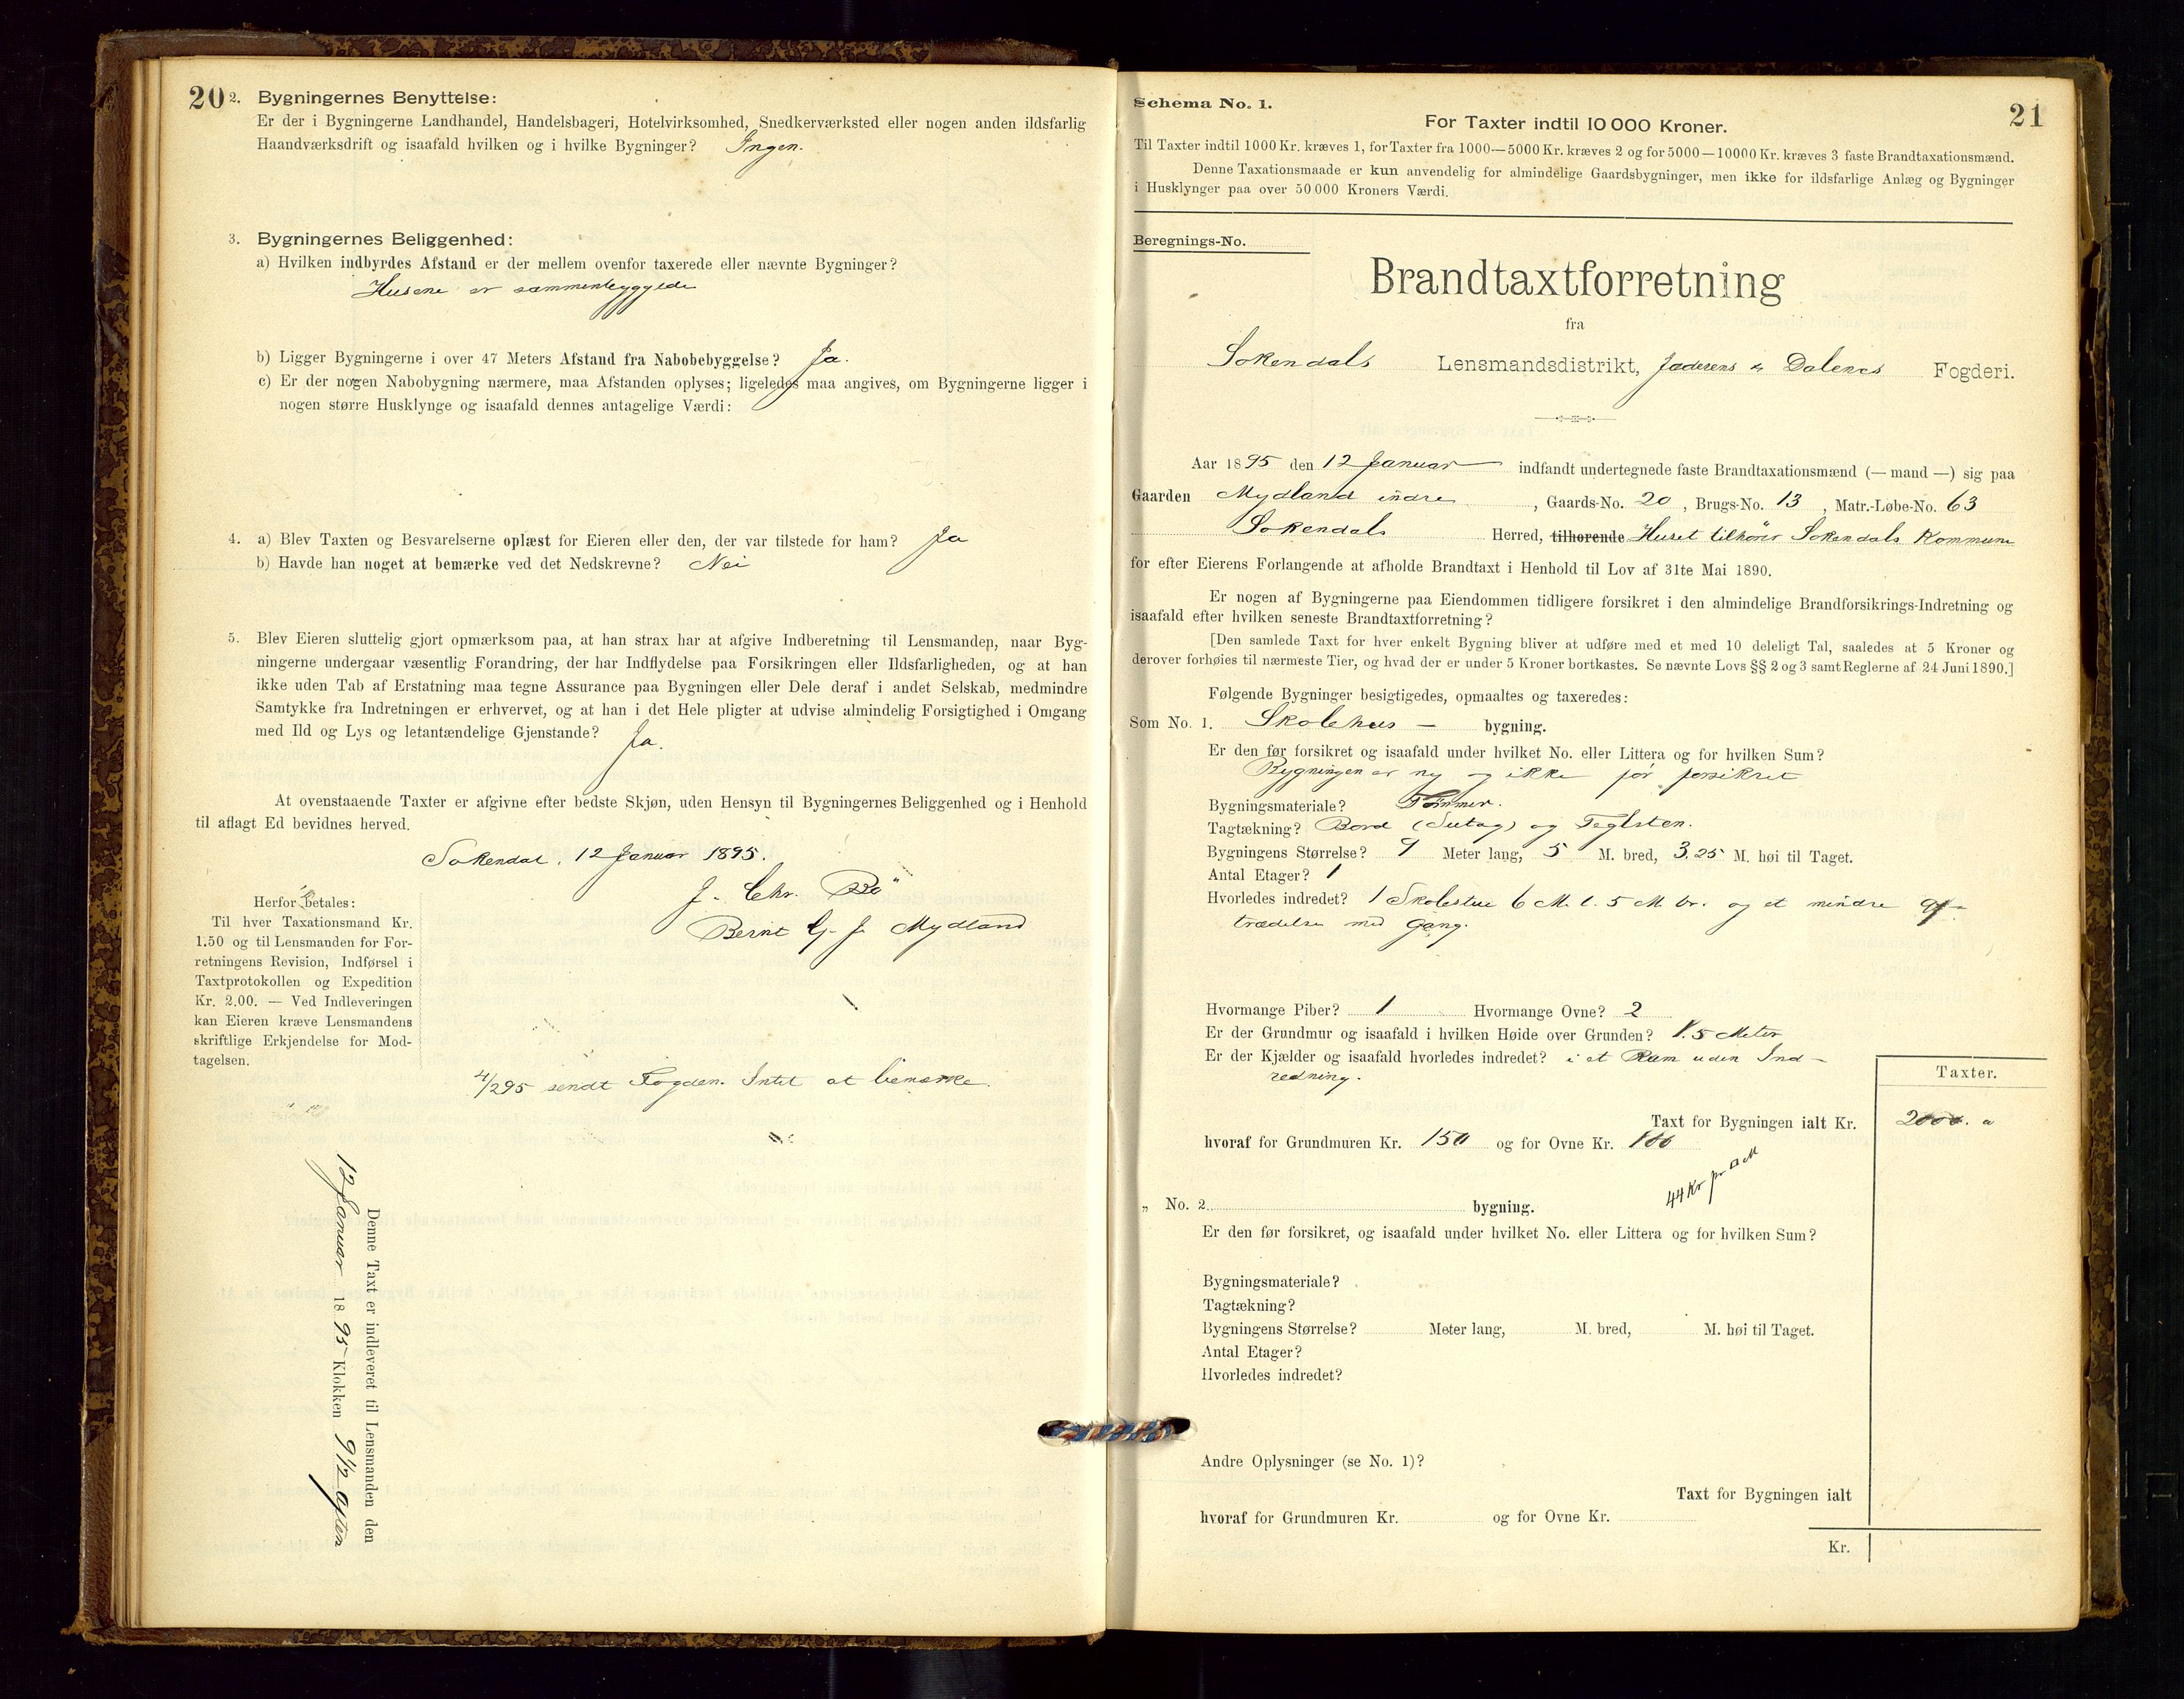 20
2. Bygningernes Benyttelse:
Er der i Bygningerne Landhandel, Handelsbageri, Hotelvirksomhed, Snedkerværksted eller nogen anden ildsfarlig
Haandværksdrift og isaafald hvilken og i hvilke Bygninger? Ingen.
3. Bygningernes Beliggenhed:
a) Hvilken indbyrdes Afstand er der mellem ovenfor taxerede eller nævnte Bygninger?
Husene er sammenbyggede
b) Ligger Bygningerne i over 47 Meters Afstand fra Nabobebyggelse? Ja.
c) Er der nogen Nabobygning nærmere, maa Afstanden oplyses; ligeledes maa angives, om Bygningerne ligger i
nogen større Husklynge og isaafald dennes antagelige Værdi:
4. a) Blev Taxten og Besvarelserne oplæst for Eieren eller den, der var tilstede for ham? Ja
b) Havde han noget at bemærke ved det Nedskrevne? Nei
5. Blev Eieren sluttelig gjort opmærksom paa, at han strax har at afgive Indberetning til Lensmanden, naar Byg-
ningerne undergaar væsentlig Forandring, der har Indflydelse paa Forsikringen eller Ildsfarligheden, og at han
ikke uden Tab af Erstatning maa tegne Assurance paa Bygningen eller Dele deraf i andet Selskab, medmindre
Samtykke fra Indretningen er erhvervet, og at han i det Hele pligter at udvise almindelig Forsigtighed i Omgang
med Ild og Lys og letantændelige Gjenstande? Ja.
At ovenstaaende Taxter er afgivne efter bedste Skjøn, uden Hensyn til Bygningernes Beliggenhed og i Henhold
til aflagt Ed bevidnes herved.
Sokendal, 12 Januar 1895.
J. Chr. Bö
Bernt G. J. Mydland
Herfor betales:
Til hver Taxationsmand Kr.
1.50 og til Lensmanden for For-
retningens Revision, Indførsel i
Taxtprotokollen og Expedition
Kr. 2.00. — Ved Indleveringen
kan Eieren kræve Lensmandens
skriftlige Erkjendelse for Mod-
tagelsen.
4/2 95 sendt Fogden. Intet at bemærke.
Denne Taxt er indleveret til Lensmanden den
12 Januar 1895 Klokken 9 1/2 aften
Schema No. 1.
21
For Taxter indtil 10 000 Kroner.
Til Taxter indtil 1000 Kr. kræves 1, for Taxter fra 1000—5000 Kr. kræves 2 og for 5000—10000 Kr. kræves 3 faste Brandtaxationsmænd.
Denne Taxationsmaade er kun anvendelig for almindelige Gaardsbygninger, men ikke for ildsfarlige Anlæg og Bygninger
i Husklynger paa over 50 000 Kroners Værdi.
Beregnings-No.
Brandtaxtforretning
fra
Sokendals Lensmandsdistrikt, Jæderens & Dalenes Fogderi.
Aar 1895 den 12 Januar indfandt undertegnede faste Brandtaxationsmænd (— mand —) sig paa
Gaarden Mydland indre, Gaards-No. 20, Brugs-No. 13, Matr.-Løbe-No. 63
Sokendals Herred, tilhørende Huset tilhörer Sokendals Kommune
for efter Eierens Forlangende at afholde Brandtaxt i Henhold til Lov af 31te Mai 1890.
Er nogen af Bygningerne paa Eiendommen tidligere forsikret i den almindelige Brandforsikrings-Indretning og
isaafald efter hvilken seneste Brandtaxtforretning?
[Den samlede Taxt for hver enkelt Bygning bliver at udføre med et med 10 deleligt Tal, saaledes at 5 Kroner og
derover forhøies til nærmeste Tier, og hvad der er under 5 Kroner bortkastes. Se nævnte Lovs §§ 2 og 3 samt Reglerne af 24 Juni 1890.]
Følgende Bygninger besigtigedes, opmaaltes og taxeredes:
Som No. 1. Skolehus — bygning.
Er den før forsikret og isaafald under hvilket No. eller Littera og for hvilken Sum?
Bygningen er ny og ikke för forsikret
Bygningsmateriale? Tömmer.
Tagtækning? Bord (Sutag) og Teglsten.
Bygningens Størrelse? 9 Meter lang, 5 M. bred, 3.25 M. høi til Taget.
Antal Etager? 1
Hvorledes indredet? 1 Skolestue 6 M. l. 5 M. br. og et mindre af-
trædelse med Gang.
Hvormange Piber? 1 Hvormange Ovne? 2
Er der Grundmur og isaafald i hvilken Høide over Grunden? 1.5 Meter
Er der Kjælder og isaafald hvorledes indredet? i et Rum uden Ind-
redning.
Taxter.
Taxt for Bygningen ialt Kr. 2000. a
hvoraf for Grundmuren Kr. 150 og for Ovne Kr. 100
44 Kr pr □ M
„ No. 2. bygning.
Er den før forsikret, og isaafald under hvilket No. eller Littera og for hvilken Sum?
Bygningsmateriale?
Tagtækning?
Bygningens Størrelse? Meter lang, M. bred, M. høi til Taget.
Antal Etager?
Hvorledes indredet?
Andre Oplysninger (se No. 1)?
Taxt for Bygningen ialt
hvoraf for Grundmuren Kr. og for Ovne Kr.
Kr.